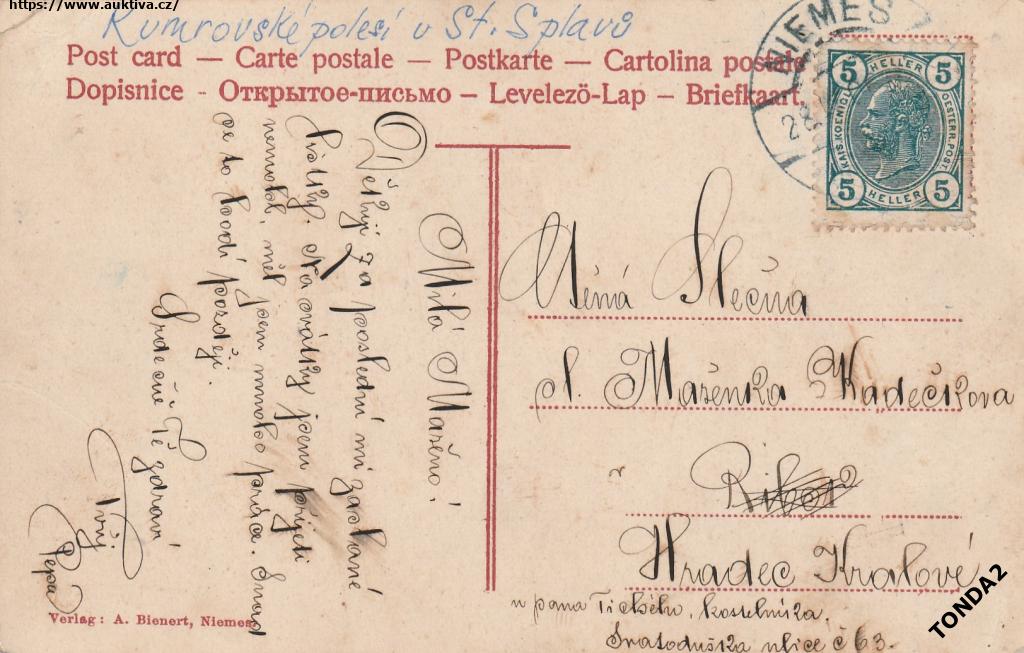 https://www.auktiva.cz/
Kumrovské polesí u St. Splavů
Post card — Carte postale — Postkarte — Cartolina postale
Dopisnice - Открытое-письмо – Levelezö-Lap – Briefkaart.
NIEMES
28
5 HELLER 5
KAIS. KOENIGL. OESTERR. POST
5 HELLER 5
Milá Mařeno!
Děkuji za poslední mi zaslané
řádky. Na svátky jsem přijeti
nemohl, měl jsem mnoho práce. Snad
se to hodí později.
Srdečně Tě zdraví
Tvůj
Pepa
Ctěná Slečna
sl. Mařenka Kadečkova
Hradec Králové
u pana Tichého, kostelníka,
Svatodušská ulice č 63.
Verlag: A. Bienert, Niemes
TONDA2